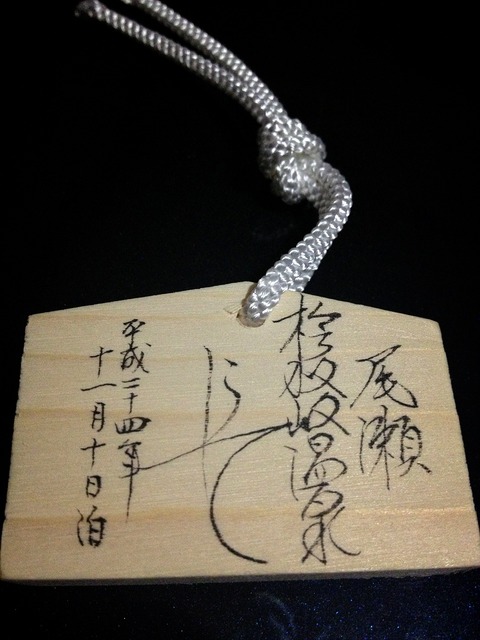 尾瀬
桧枝岐温泉
にて
平成二十四年
十一月十日泊